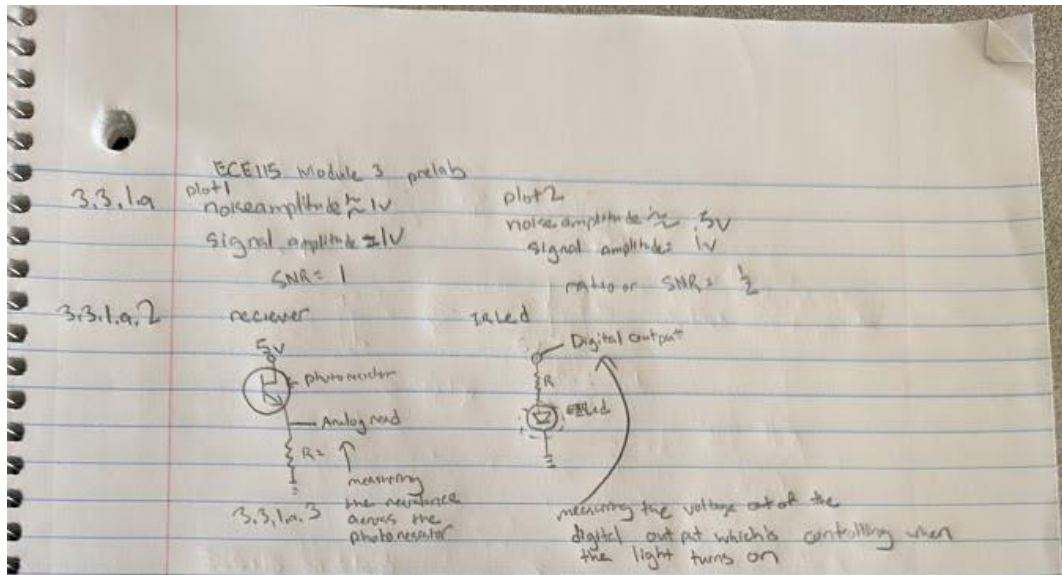 ECE115 Module 3 prelab
3.3.1.a
plot1
noise amplitude ≈ 1v
signal amplitude = 1V
SNR = 1
plot2
noise amplitude ≈ .5v
signal amplitude = 1v
ratio or SNR = 1/2
3.3.1.a.2
reciever
5v
photoresistor
Analog read
R=
measuring
the resistance
across the
photoresistor
3.3.1.a.3
IR Led
Digital output
R
Led
measuring the voltage out of the
digital output which is controlling when
the light turns on